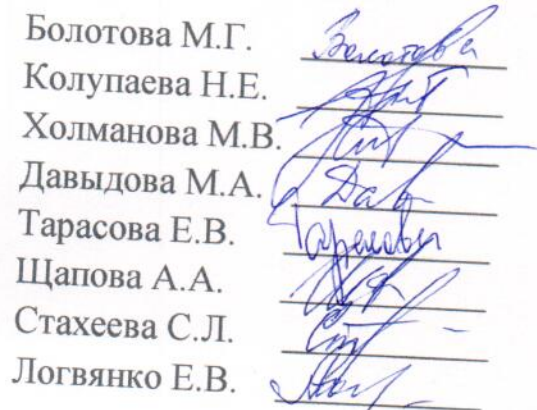 Болотова М.Г. Болотова
Колупаева Н.Е.
Холманова М.В.
Давыдова М.А. Дав
Тарасова Е.В. Тарасова
Щапова А.А.
Стахеева С.Л.
Логвянко Е.В.